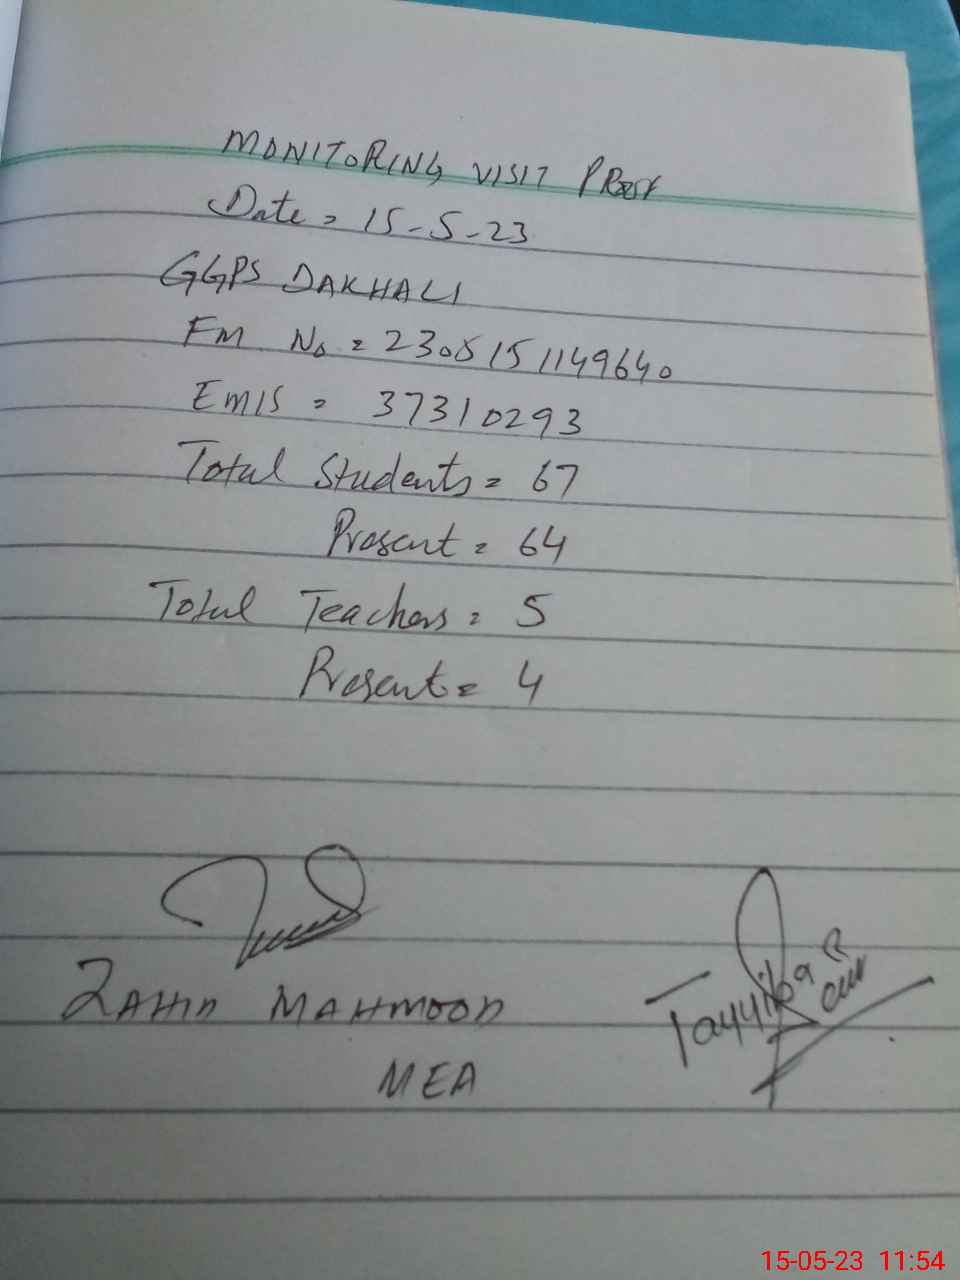 MONITORING VISIT PROOF
Date = 15-5-23
GGPS DAKHALI
FM No = 2305151149640
EMIS = 37310293
Total Students = 67
Present = 64
Total Teachers = 5
Present = 4
ZAHID MAHMOOD
MEA
Tayyiba
15-05-23 11:54